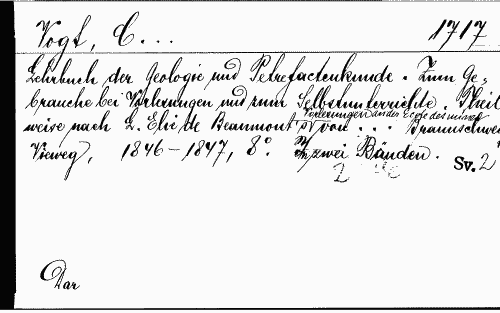 Vogt, C... 1717
Lehrbuch der Geologie und Petrefactenkunde. Zum Ge-
brauche bei Vorlesungen und zum Selbstunterrichte. Theil
Vorlesungen an der Ecole des mines
weise nach L. Elie de Beaumont's von ... Braunschwei
Vieweg, 1846-1847, 8°. In zwei Bänden. Sv. 2
2
Dar